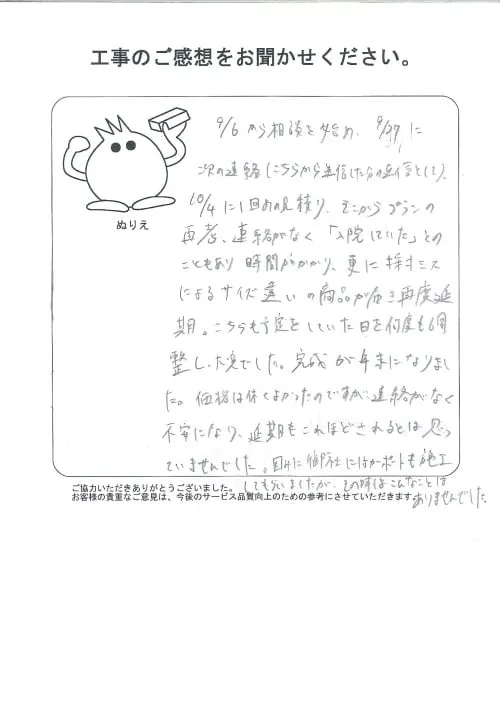 工事のご感想をお聞かせください。
ぬりえ
9/6 から相談を始め、9/27 に
次の連絡(こちらから送信した分の返信として)、
10/4に1回目の見積り、そこからプランの
再考、連絡がなく「入院していた」との
こともあり時間がかかり、更に採寸ミス
によるサイズ違いの商品が届き再度延
期。こちらも予定をしていた日を何度も調
整し大変でした。完成が年末になりまし
た。価格は低くよかったのですが、連絡がなく
不安になり、延期もこれほどされるとは思っ
ていませんでした。御社にはカーポートも施工
してもらいましたが、その時はこんなことは
ありませんでした。
ご協力いただきありがとうございました。
お客様の貴重なご意見は、今後のサービス品質向上のための参考にさせていただきます